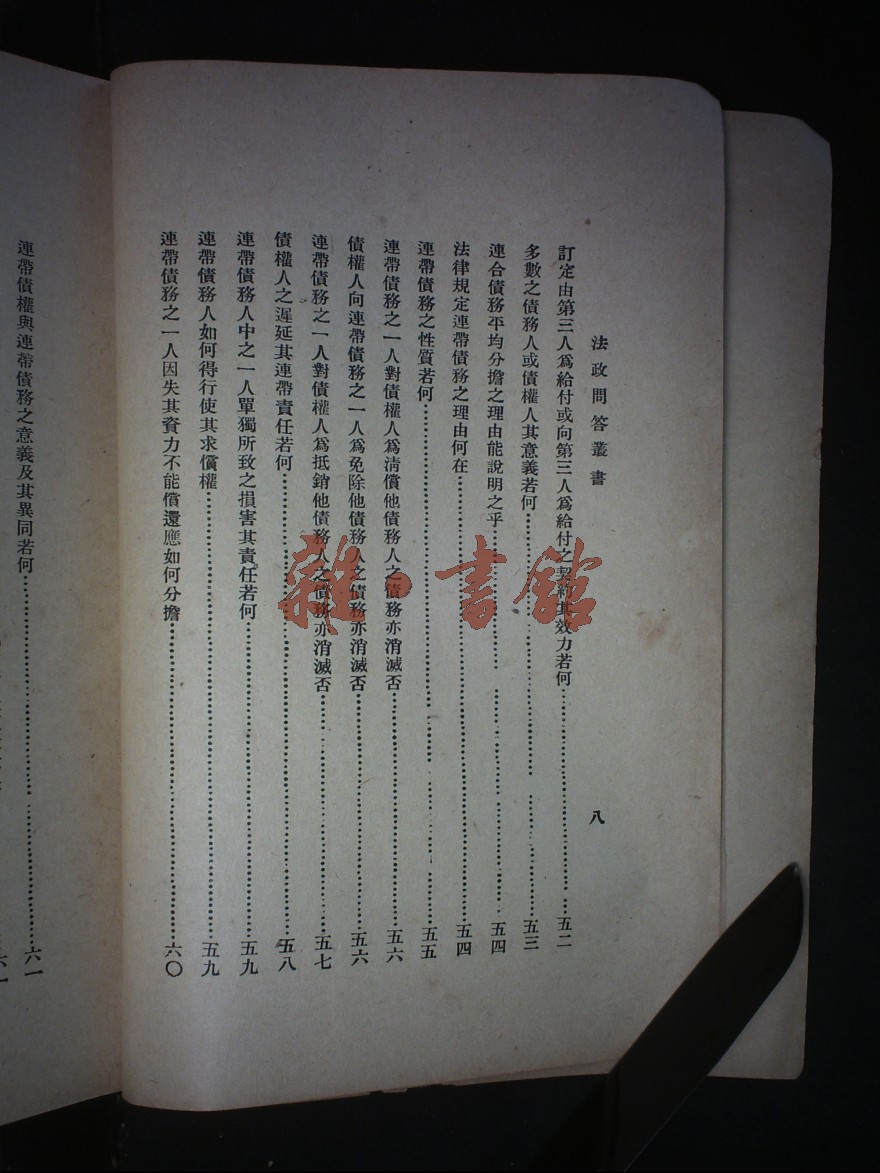 法政問答叢書　八
訂定由第三人爲給付或向第三人爲給付之契約其效力若何……五二
多數之債務人或債權人其意義若何……五三
連合債務平均分擔之理由能說明之乎……五四
法律規定連帶債務之理由何在……五四
連帶債務之性質若何……五五
連帶債務之一人對債權人爲清償他債務人之債務亦消滅否……五六
債權人向連帶債務之一人爲免除他債務人之債務亦消滅否……五六
連帶債務之一人對債權人爲抵銷他債務人之債務亦消滅否……五七
債權人之遲延其連帶責任若何……五八
連帶債務人中之一人單獨所致之損害其責任若何……五九
連帶債務人如何得行使其求償權……五九
連帶債務之一人因失其資力不能償還應如何分擔……六〇
連帶債權與連帶債務之意義及其異同若何……六一
雜·書館